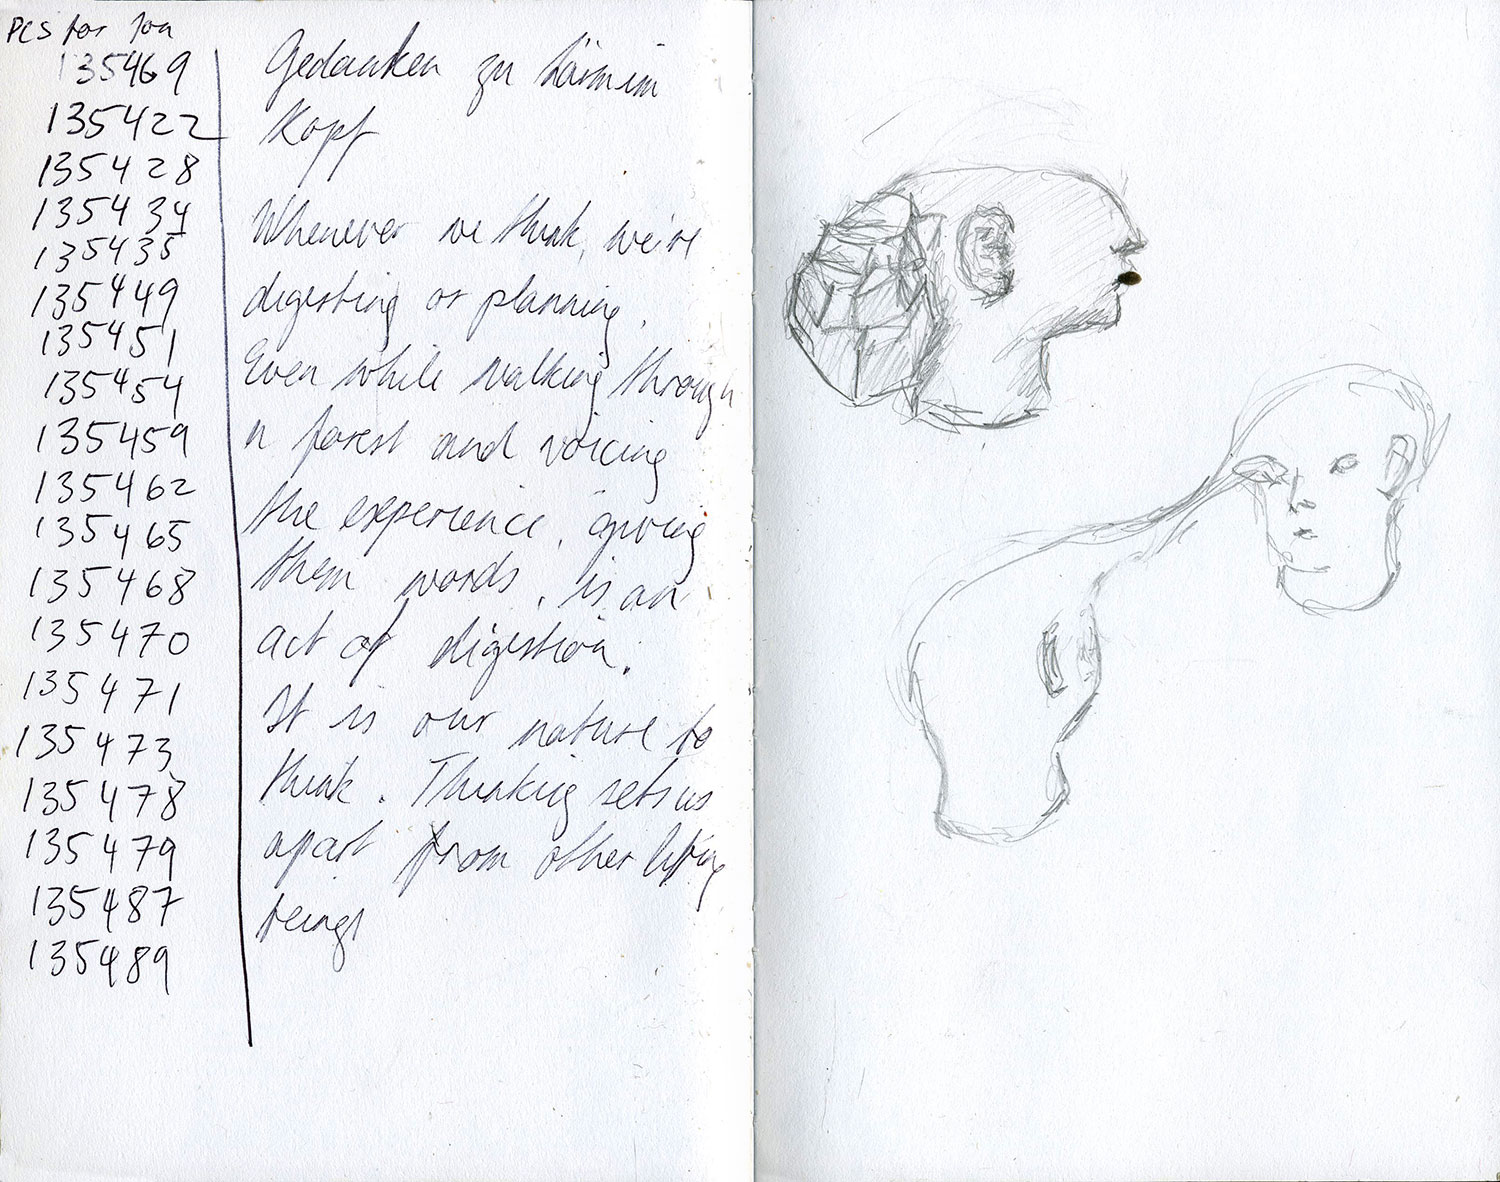 PCS for Joa
135469
135422
135428
135434
135435
135449
135451
135454
135459
135462
135465
135468
135470
135471
135473
135478
135479
135487
135489
Gedanken zu Lärm im
Kopf
Whenever we think, we're
digesting or planning.
Even while walking through
a forest and voicing
the experience, giving
them words, is an
act of digestion.
It is our nature to
think. Thinking sets us
apart from other living
beings